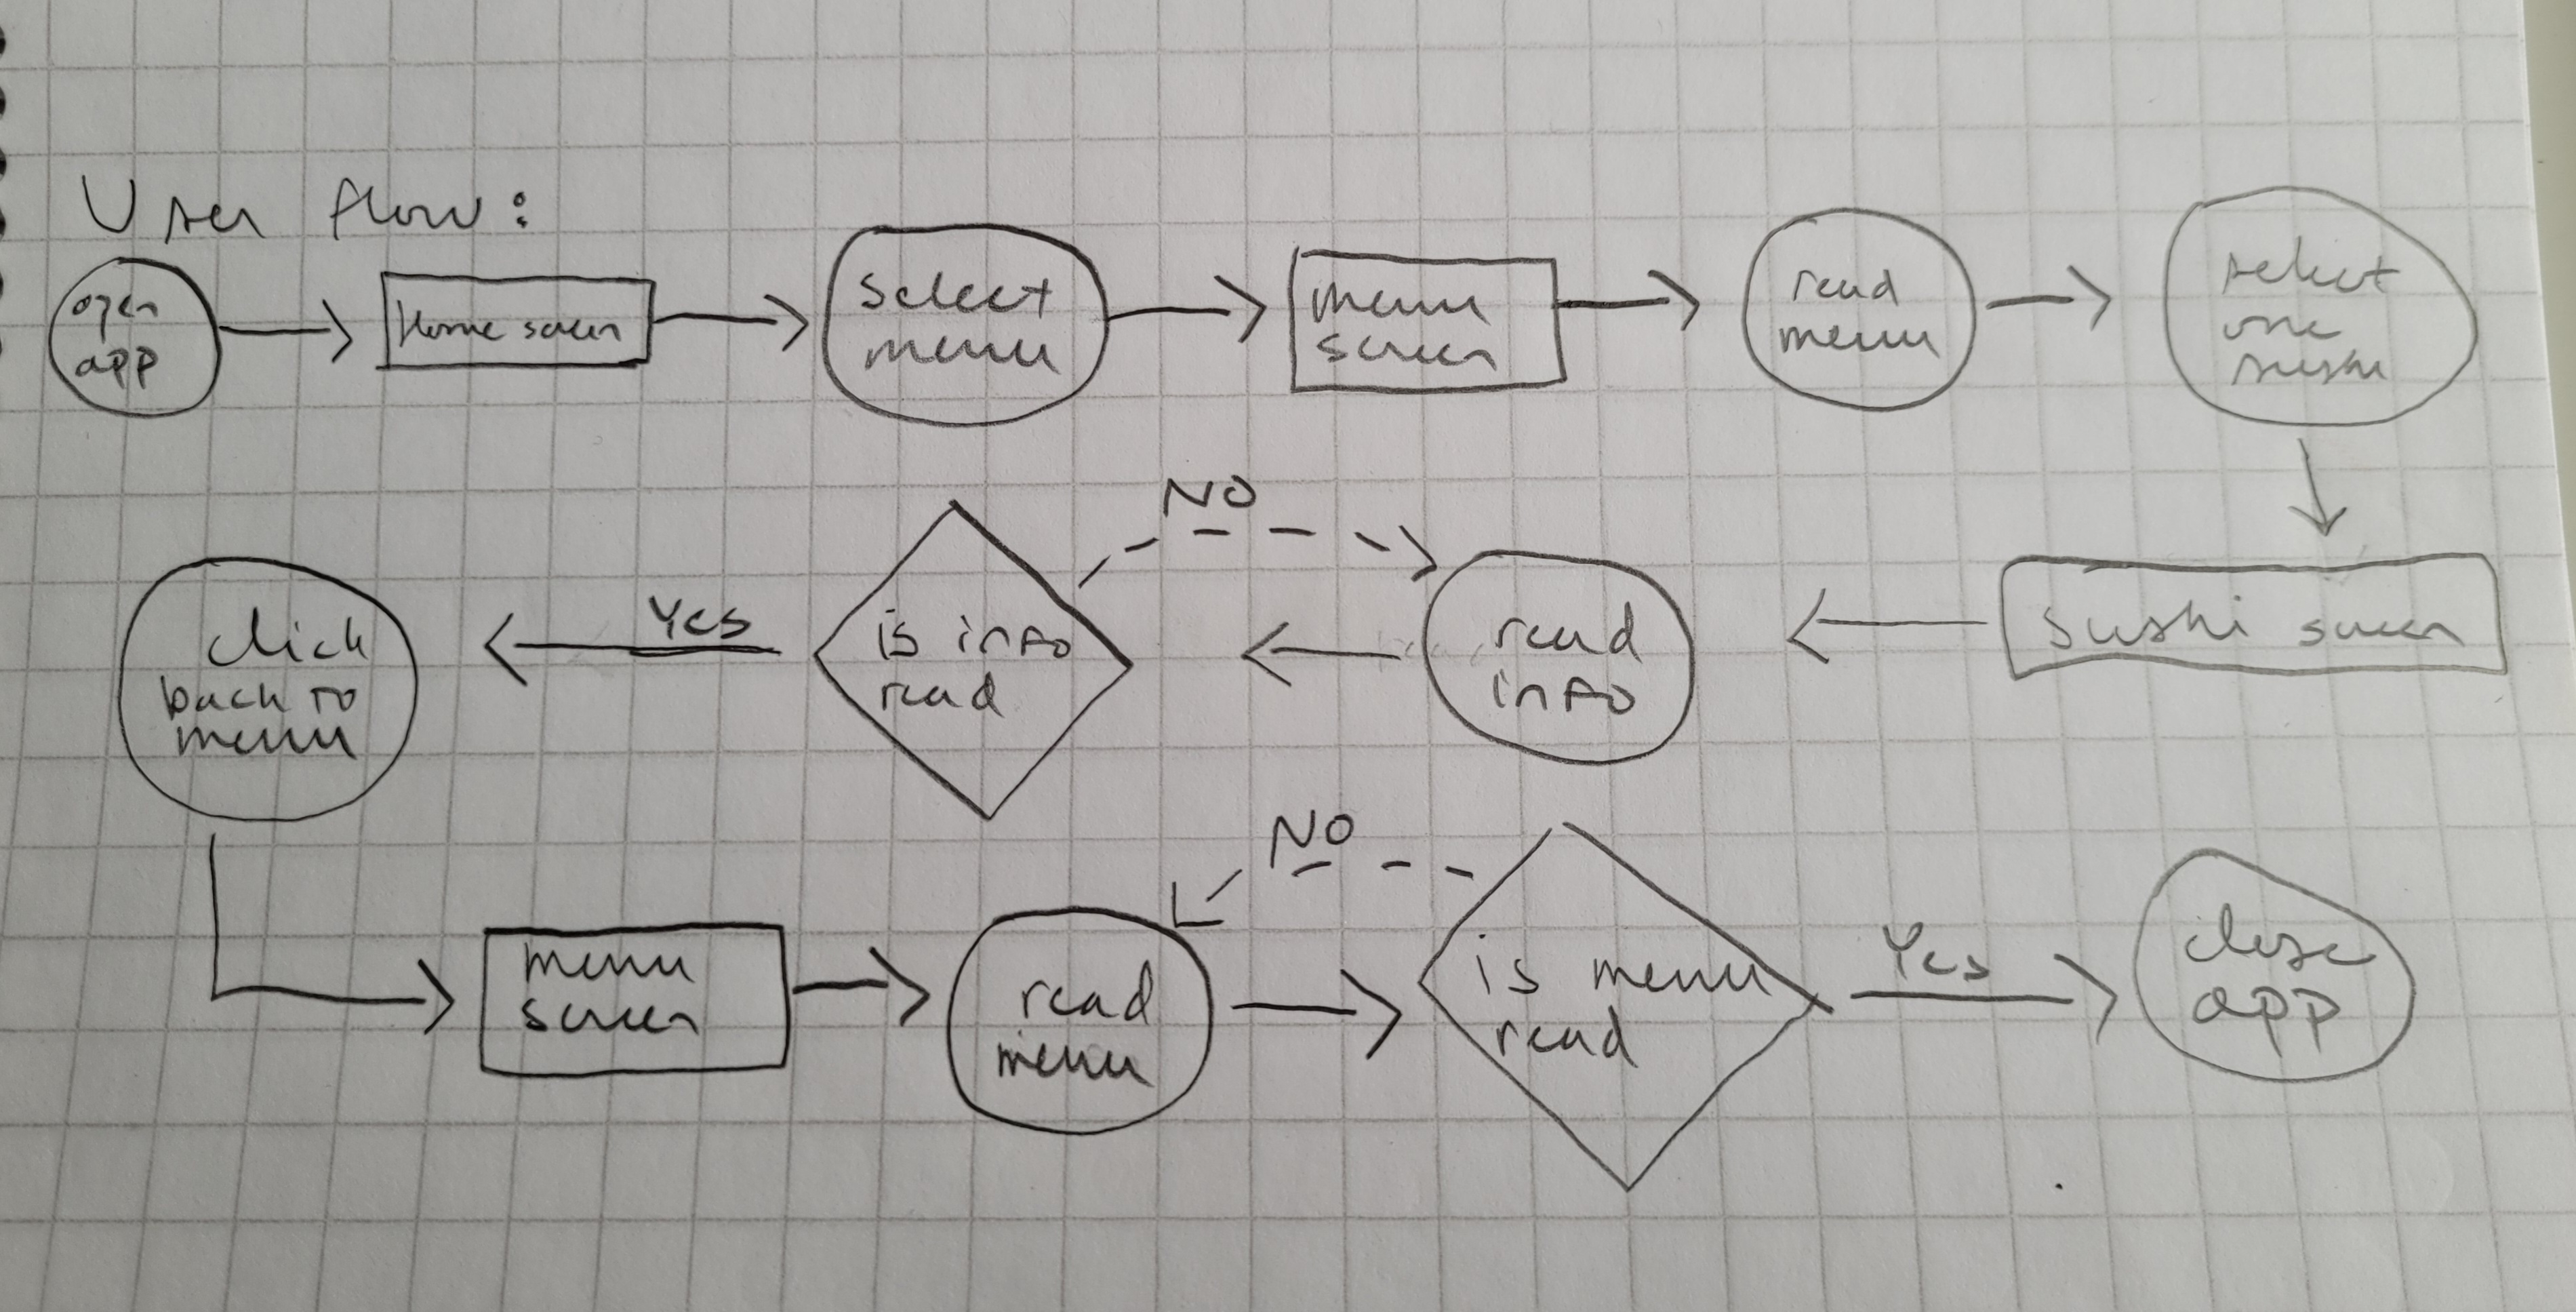 User flow:
open
app
Home screen
select
menu
menu
screen
read
menu
select
one
sushi
NO
Sushi screen
read
info
is info
read
Yes
click
back to
menu
NO
menu
screen
read
menu
is menu
read
Yes
close
app